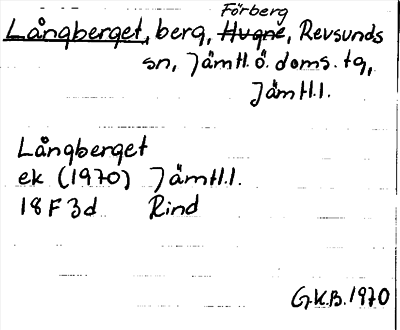 Förberg
Långberget, berg, Hugne, Revsunds
sn, Jämtl. ö. doms. tg,
Jämtl.l.
Långberget
ek (1970) Jämtl.l.
18 F 3d Rind
G.K.B. 1970